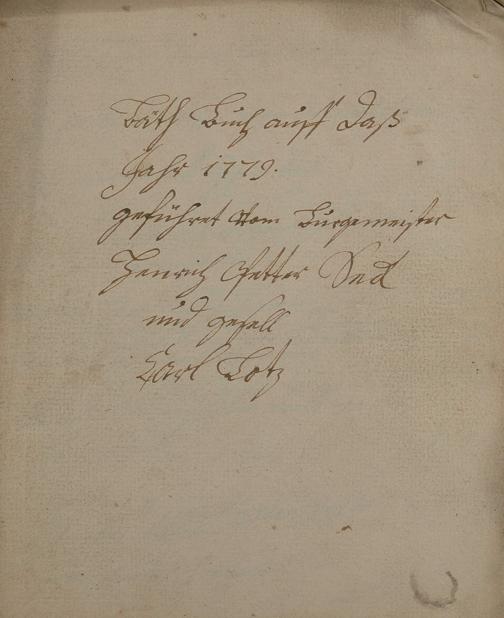 Bäth Buch auff daß
Jahr 1779.
geführet vom Burgemeister
Henrich Petter
und gesell
Carl Lotz